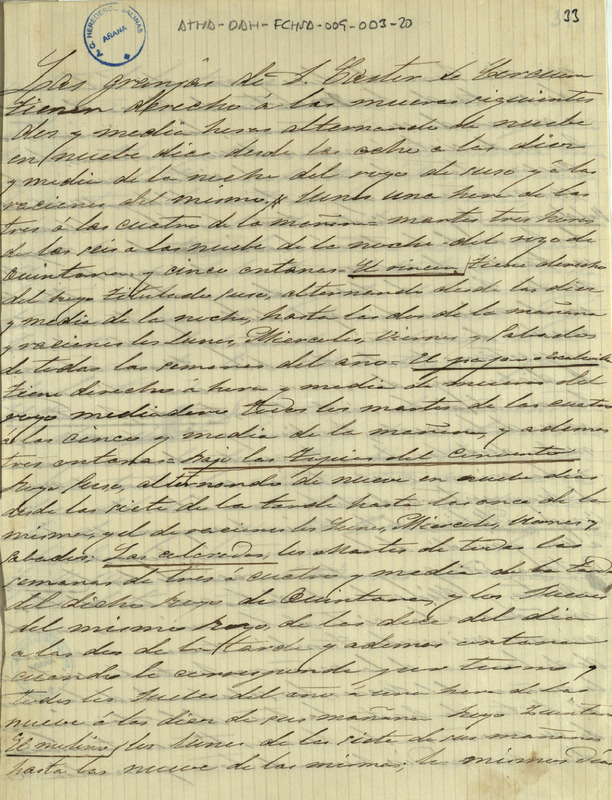 33
ATHA-DAH-FCHSA-009-003-20
T. G. HEREDEROS SALINAS
AÑANA
Las granjas de D.
Tienen derecho á las mueras siguientes
dos y media horas alternando de noche
en nueve dias desde las ocho a las diez
y media de la noche del royo de suso y á las
raciones del mismo, y lunes una hora de las
tres á las cuatro de la mañana = martes tres horas
de las seis a las nueve de la noche del royo de
Quintana y cinco entanas = El rincon, tiene derecho
del royo titulado suso, alternando desde las diez
y media de la noche, hasta las dos de la mañana
y raciones los lunes, Miercoles, Viernes y Sabados
de todas las semanas del año = El
tiene derecho á hora y media de muera del
royo todos los martes de las cuatro
á las cinco y media de la mañana, y ademas
tres entanas = Bajo las del Convento
Royo Suso, alternando de nueve en nueve dias
desde las siete de la tarde hasta las once de la
misma, y el de raciones los lunes, Miercoles, Viernes y
Sabados, Las coloradas, los Martes de todas las
semanas de tres á cuatro y media de la
del dicho royo de Quintana, y los Jueves
del mismo Royo de las doce del dia
a las dos de la tarde y ademas entana
cuando le corresponde por turno, y
todos los Jueves del año á una hora de las
nueve á las diez de sus mañana royo
El molino, los lunes de las siete de sus mañanas
hasta las nueve de las mismas; los mismos dias